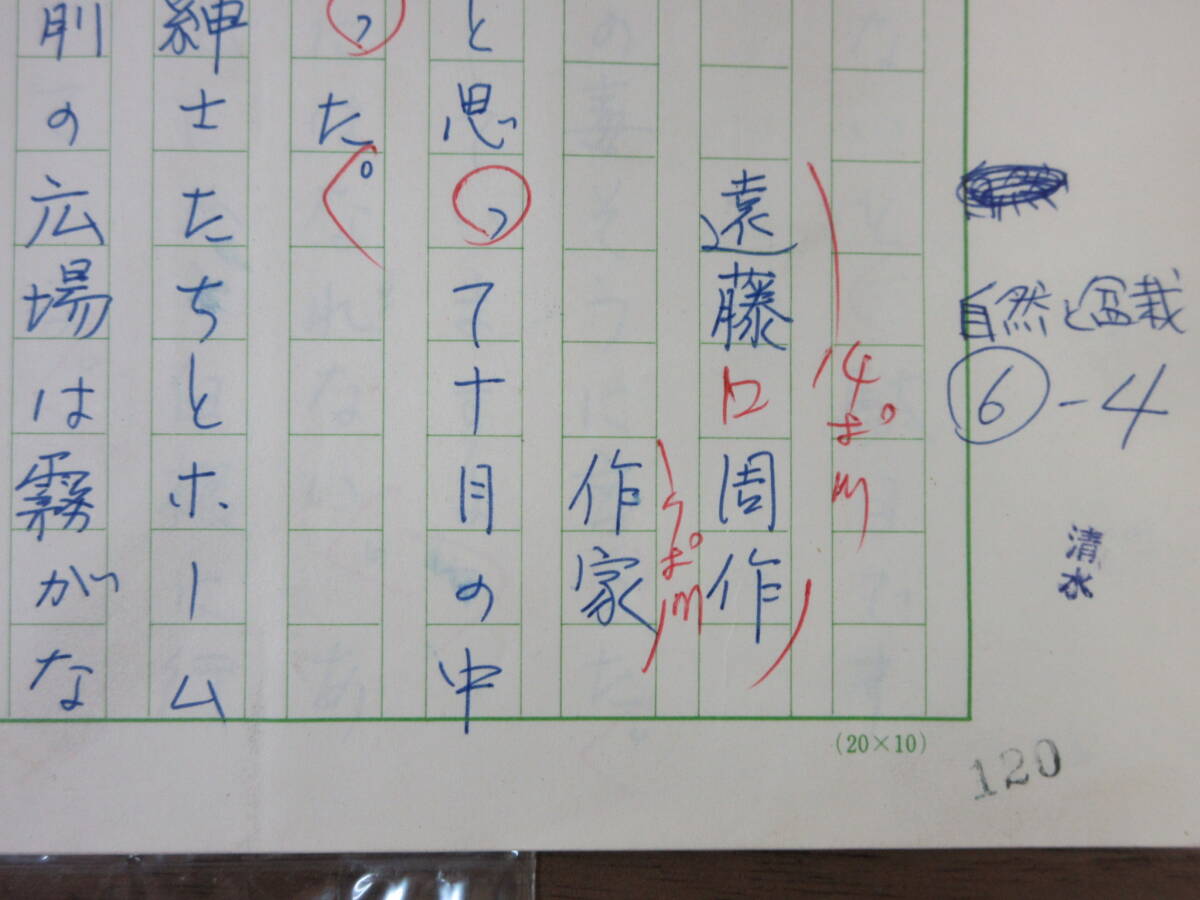 自然と盆栽
⑥-4
清水
14ポM
遠藤口周作
9ポM
作家
と思って十月の中
った。
紳士たちとホーム
前の広場は霧がな
(20×10)
120